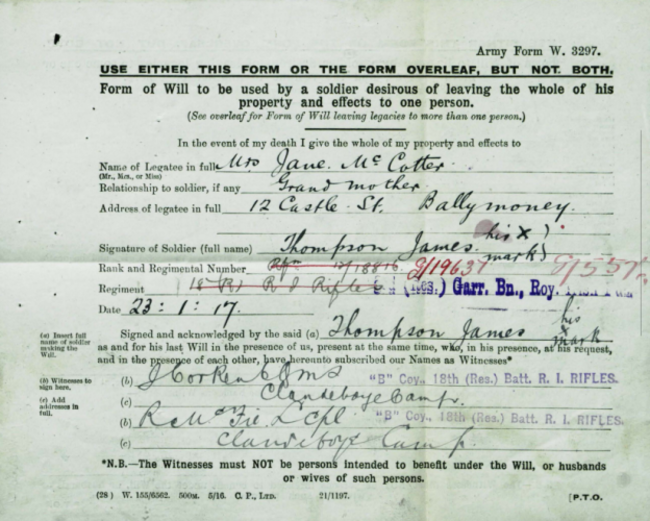 Army Form W. 3297.
USE EITHER THIS FORM OR THE FORM OVERLEAF, BUT NOT BOTH.
Form of Will to be used by a soldier desirous of leaving the whole of his
property and effects to one person.
(See overleaf for Form of Will leaving legacies to more than one person.)
In the event of my death I give the whole of my property and effects to
Name of Legatee in full Mrs Jane McCotter
(Mr., Mrs., or Miss)
Relationship to soldier, if any Grand mother
Address of legatee in full 12 Castle St. Ballymoney.
Signature of Soldier (full name) Thompson James his X mark
Rank and Regimental Number Rfn 18846 G/19637 G/557
Regiment 18th (R) R I Rifles (Res.) Garr. Bn., Roy.
Date 23 : 1 : 17.
Signed and acknowledged by the said (a) Thompson James his X mark
as and for his last Will in the presence of us, present at the same time, who, in his presence, at his request,
and in the presence of each other, have hereunto subscribed our Names as Witnesses*
(a) Insert full name of soldier making the Will.
(b) Witnesses to sign here.
(c) Add addresses in full.
(b) "B" Coy., 18th (Res.) Batt. R. I. RIFLES.
(c) Clandeboye Camp.
(b) L/Cpl "B" Coy., 18th (Res.) Batt. R. I. RIFLES.
(c) Clandeboye Camp.
*N.B.—The Witnesses must NOT be persons intended to benefit under the Will, or husbands
or wives of such persons.
(28) W. 155/6562. 500M. 5/16. C. P., LTD. 21/1197. [P.T.O.